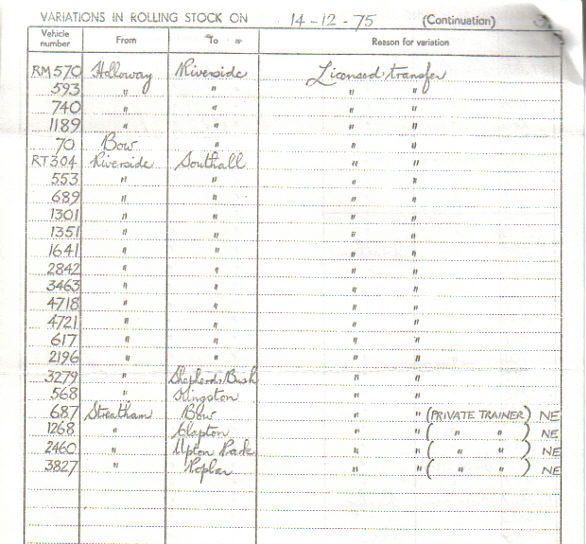 VARIATIONS IN ROLLING STOCK ON 14-12-75 (Continuation)
Vehicle number From To Reason for variation
RM 570 Holloway Riverside Licensed transfer
593 " " " "
740 " " " "
1189 " " " "
70 Bow " " "
RT 304 Riverside Southall " "
553 " " " "
689 " " " "
1301 " " " "
1351 " " " "
1641 " " " "
2842 " " " "
3463 " " " "
4718 " " " "
4721 " " " "
617 " " " "
2196 " " " "
3279 " Shepherds Bush " "
568 " Kingston " "
687 Streatham Bow " " (PRIVATE TRAINER) NE
1268 " Clapton " " ( " " ) NE
2460 " Upton Park " " ( " " ) NE
3827 " Poplar " " ( " " ) NE